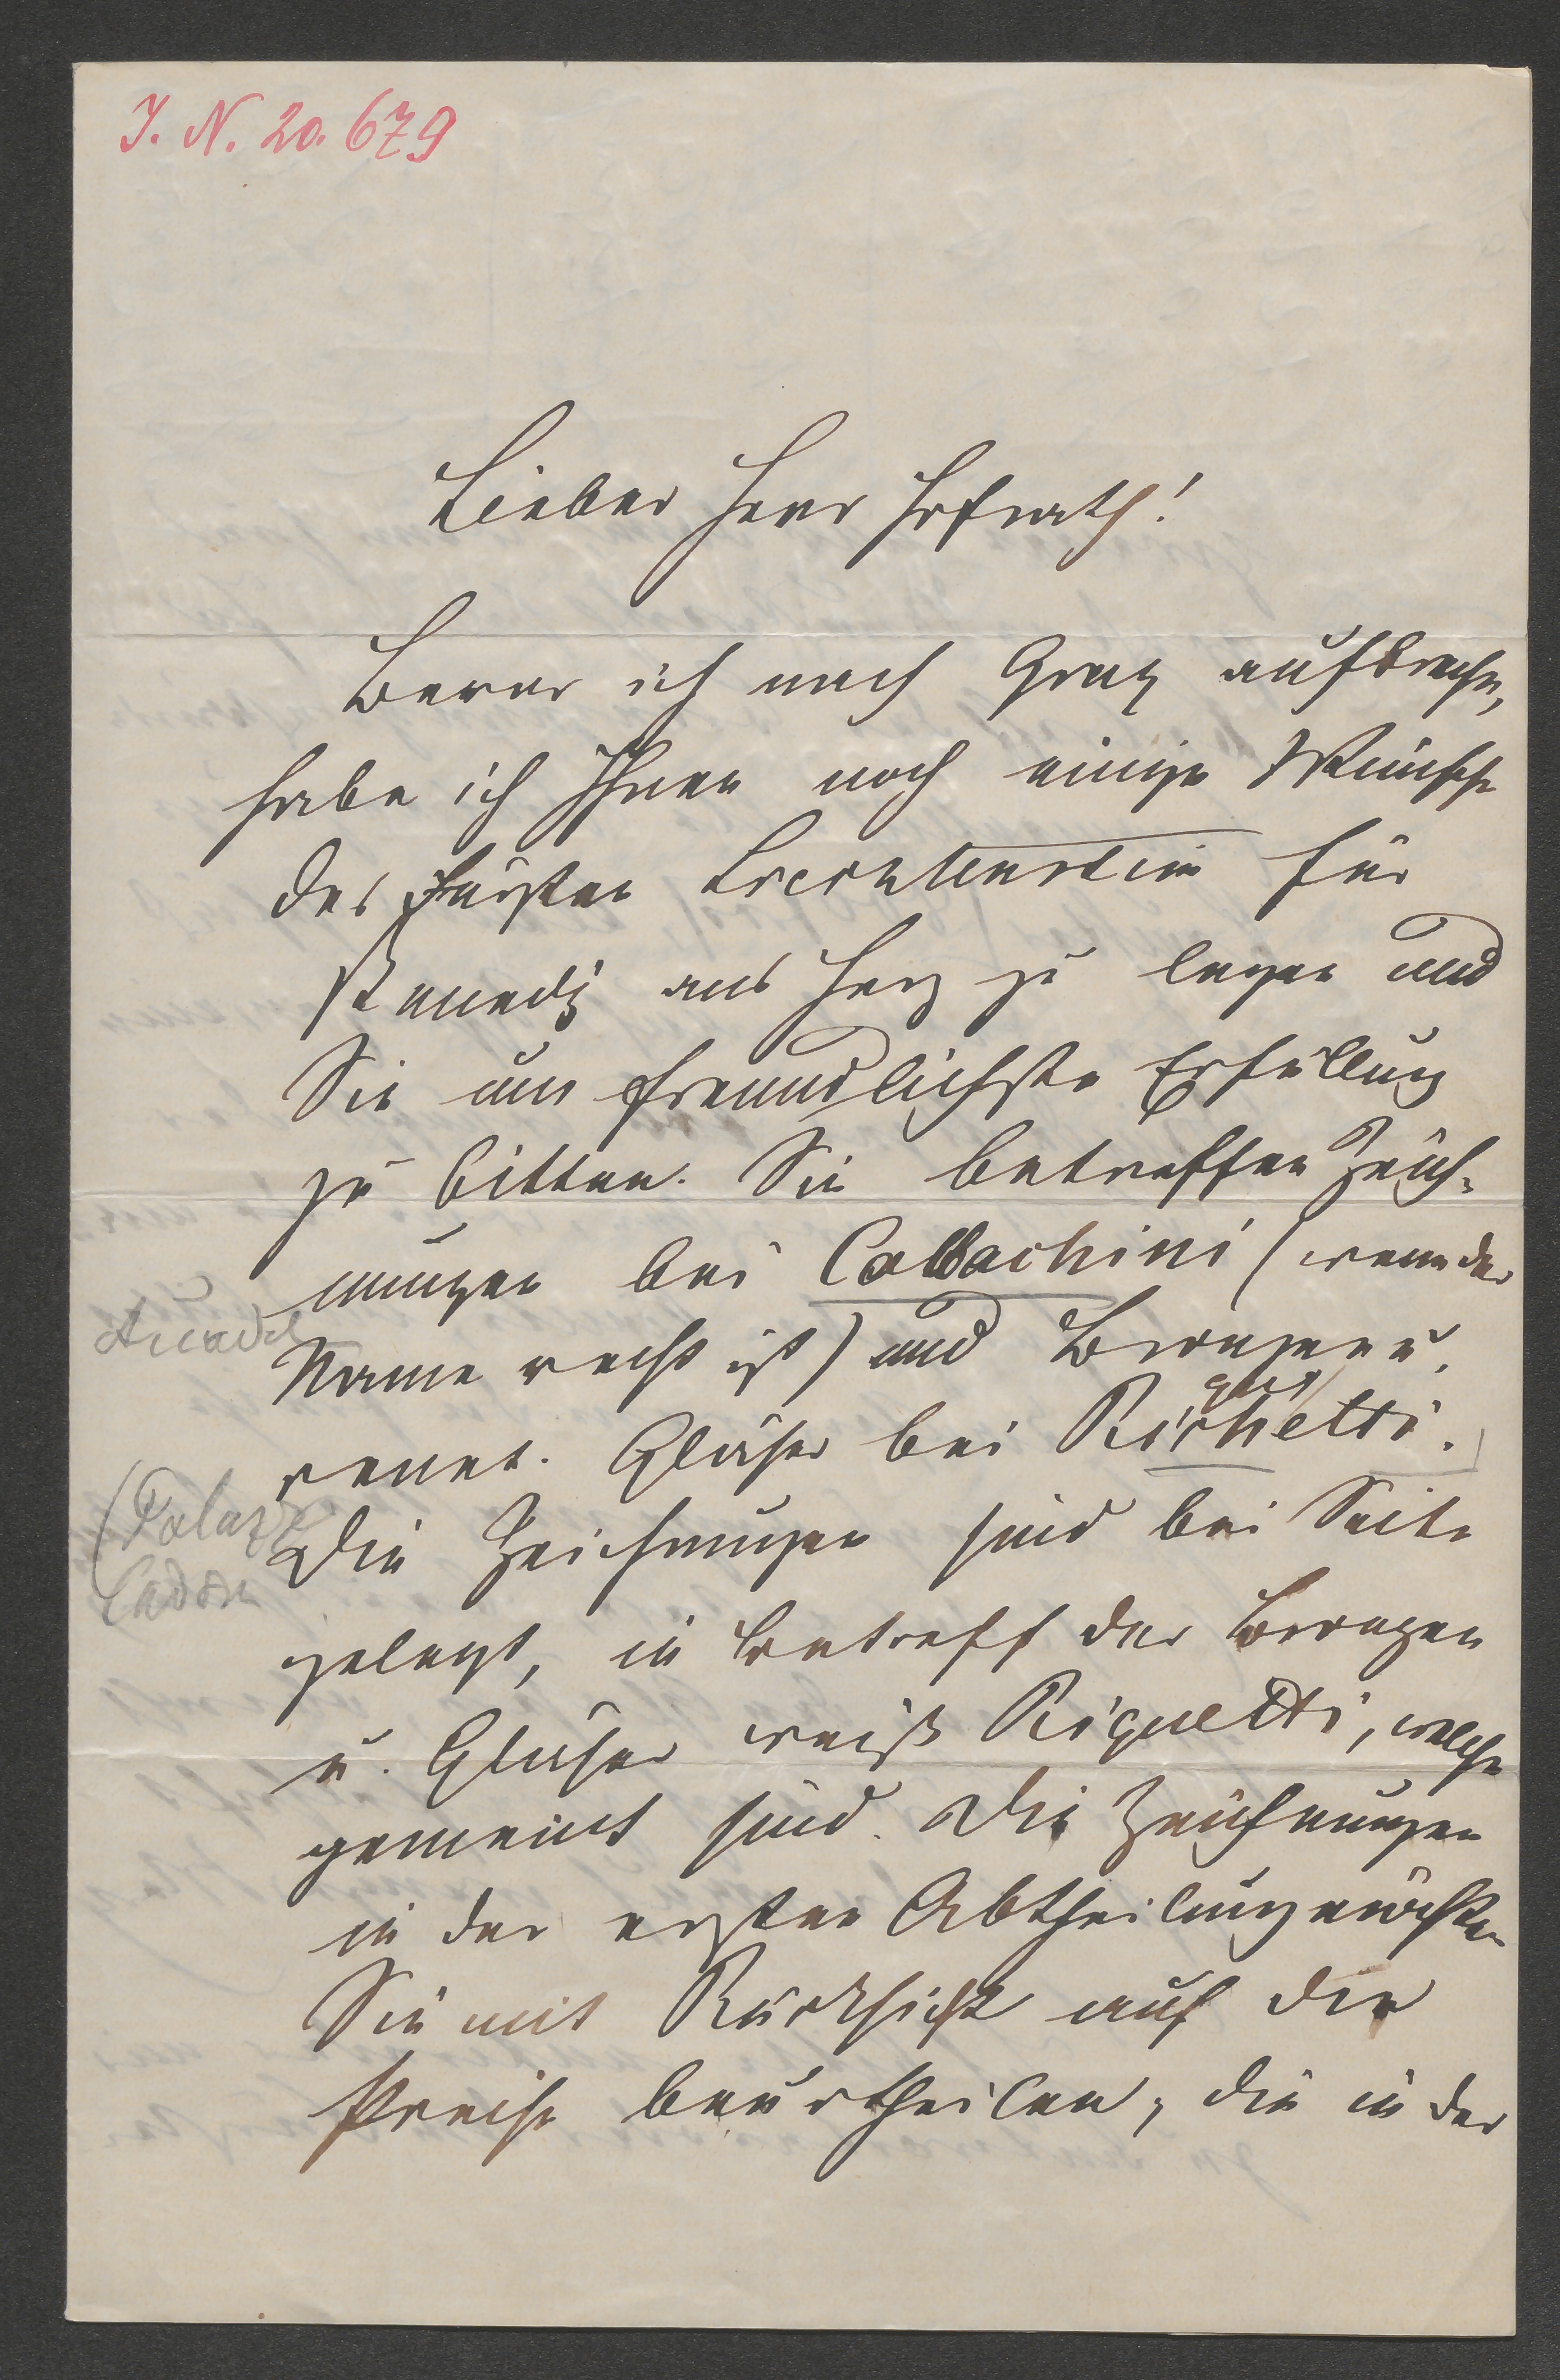 J. N. 20.679
Lieber Herr Hofrath!
Bevor ich nach Graz aufbreche,
habe ich Ihnen noch einige Wünsche
des Fürsten Liechtenstein für
Venedig ans Herz zu legen und
Sie um freundlichste Erfüllung
zu bitten. Sie betreffen Zeich-
nungen bei Calbachini (wenn der
Name recht ist) und Bronzen u.
venet. Gläser bei Richetti.
que
Die Zeichnungen sind bei Seite
(Palazz
gelegt, in Betreff der Bronzen
u. Gläser weiß Riquetti, welche
gemeint sind. Die Zeichnungen
in der ersten Abtheilung möchten
Sie mit Rücksicht auf die
Preise beurtheilen, die in der